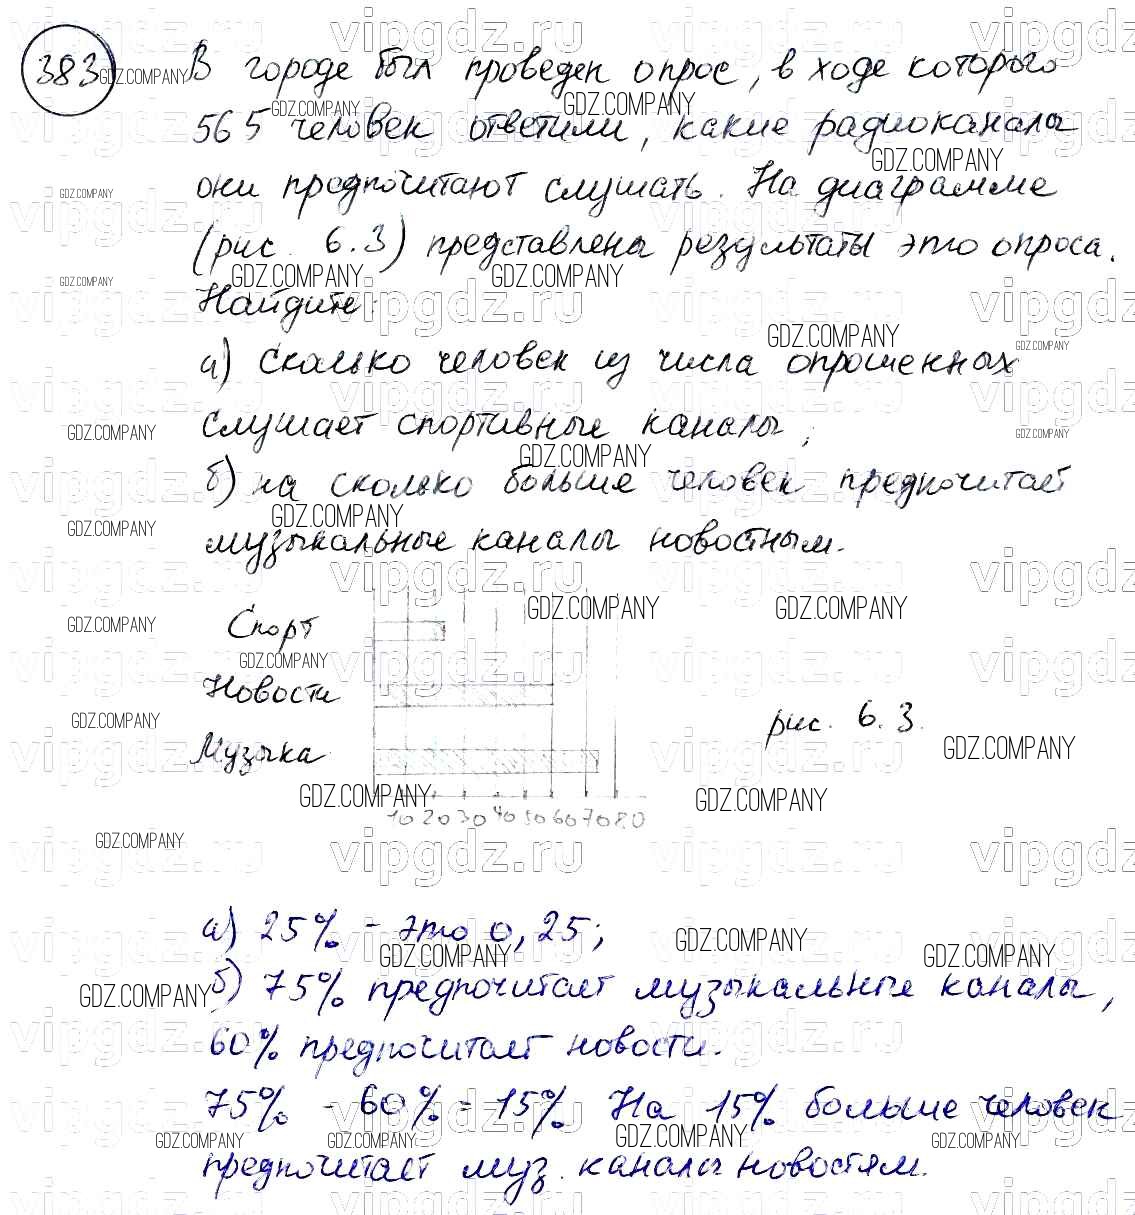 383 В городе был проведен опрос, в ходе которого
565 человек ответили, какие радиоканалы
они предпочитают слушать. На диаграмме
(рис. 6.3) представлены результаты это опроса.
Найдите:
а) сколько человек из числа опрошенных
слушает спортивные каналы;
б) на сколько больше человек предпочитает
музыкальные каналы новостным.
Спорт
Новости
Музыка
рис. 6.3.
10 20 30 40 50 60 70 80
а) 25% - это 0,25;
б) 75% предпочитает музыкальные каналы,
60% предпочитает новости.
75% - 60% = 15% На 15% больше человек
предпочитает муз. каналы новостям.
GDZ.COMPANY
vipgdz.ru